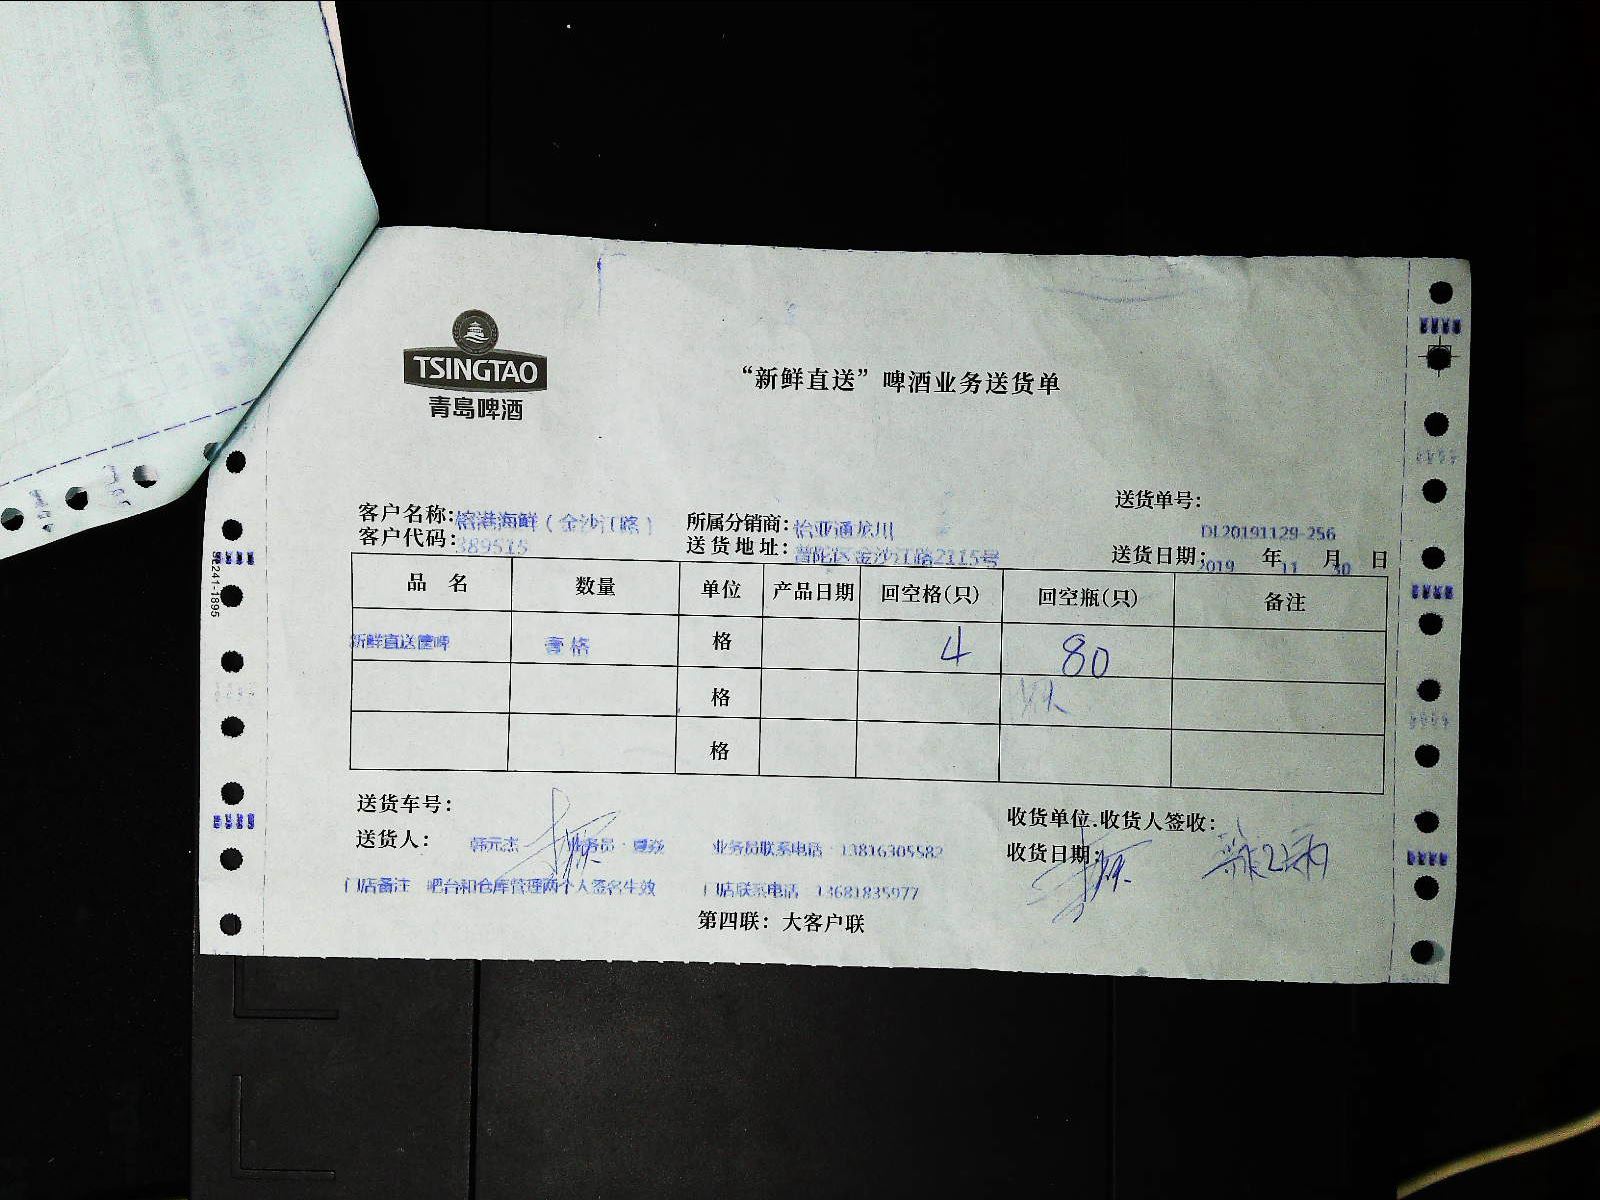 TSINGTAO
青岛啤酒
“新鲜直送”啤酒业务送货单
送货单号:
DL20191129-256
客户名称: 港海鲜（金沙江路）
所属分销商: 怡亚通龙川
客户代码: 389515
送货地址: 普陀区金沙江路2115号
送货日期: 2019 年 11 月 30 日
品 名 数量 单位 产品日期 回空格(只) 回空瓶(只) 备注
新鲜直送 啤 格 格 4 80
格
格
送货车号:
收货单位.收货人签收:
送货人: 韩元杰 业务员: 夏焱 业务员联系电话: 13816305582
收货日期:
门店备注 吧台和仓库管理两个人签名生效 门店联系电话 13681835977
第四联: 大客户联
SL241-1895